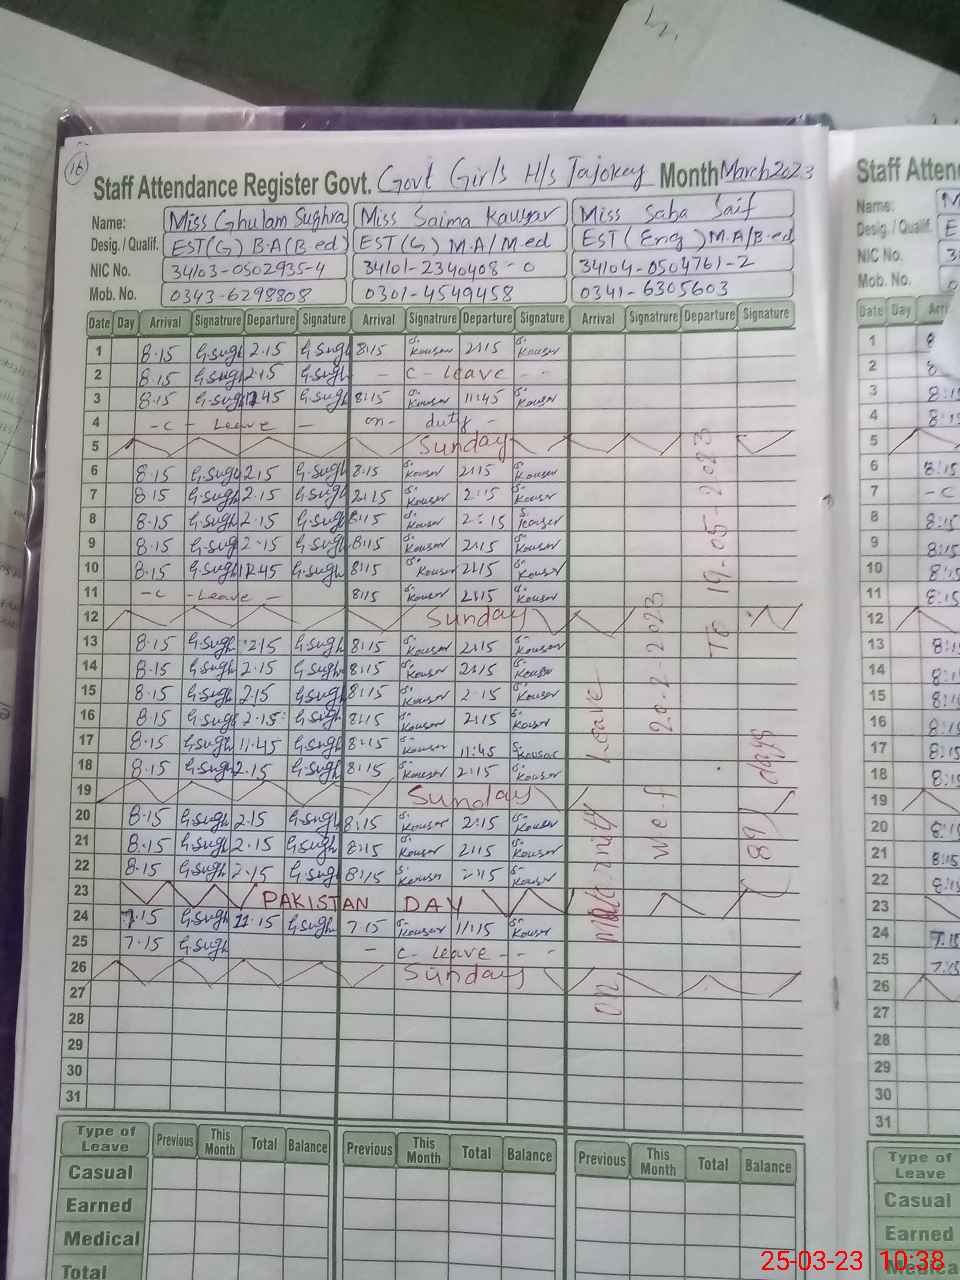 16
Staff Attendance Register Govt. Govt Girls H/s Tajokey Month March 2023
Name: Miss Ghulam Sughra Miss Saima Kausar Miss Saba Saif
Desig. / Qualif. EST(G) B.A(B.ed) EST(G) M.A/M.ed EST(Eng) M.A/B.ed
NIC No. 34103-0502935-4 34101-2340408-0 34104-0504761-2
Mob. No. 0343-6298808 0301-4549458 0341-6305603
Date Day Arrival Signatrure Departure Signature Arrival Signatrure Departure Signature Arrival Signatrure Departure Signature
1 8.15 G.Sugh 2.15 G.Sugh 8:15 Kousar 2:15 Kousar
2 8.15 G.Sugh 2.15 G.Sugh - C - Leave - -
3 8.15 G.Sugh 11.45 G.Sugh 8:15 Kousar 11:45 Kousar
4 - C - Leave - on - duty -
5 Sunday
6 8.15 G.Sugh 2.15 G.Sugh 8:15 Kousar 2:15 Kousar
7 8.15 G.Sugh 2.15 G.Sugh Kousar 2:15 Kousar
8 8.15 G.Sugh 2.15 G.Sugh 8:15 Kousar 2:15 Kousar
9 8.15 G.Sugh 2.15 G.Sugh 8:15 Kousar 2:15 Kousar
10 8.15 G.Sugh G.Sugh 8:15 Kousar 2:15 Kousar
11 - C - Leave - 8:15 Kousar 2:15 Kousar
12 Sunday
13 8.15 G.Sugh 2.15 G.Sugh 8:15 Kousar 2:15 Kousar
14 8.15 G.Sugh 2.15 G.Sugh 8:15 Kousar 2:15 Kousar
15 8.15 G.Sugh 2.15 G.Sugh 8:15 Kousar 2:15 Kousar
16 8.15 G.Sugh 2.15 G.Sugh 8:15 Kousar 2:15 Kousar
17 8.15 G.Sugh 11.45 G.Sugh 8:15 Kousar 11:45 Kousar
18 8.15 G.Sugh 2.15 G.Sugh 8:15 Kousar 2:15 Kousar
19 Sunday
20 8.15 G.Sugh 2.15 G.Sugh 8:15 Kousar 2:15 Kousar
21 8.15 G.Sugh 2.15 G.Sugh 8:15 Kousar 2:15 Kousar
22 8.15 G.Sugh 2.15 G.Sugh 8:15 Kousar 2:15 Kousar
23 PAKISTAN DAY
24 7.15 G.Sugh 11.15 G.Sugh 7.15 Kousar 11:15 Kousar
25 7.15 G.Sugh - C - Leave - - -
26 Sunday
27
28
29
30
31
on leave
w.e.f 20-2-2023
To 19-05-2023
89) days
Type of Leave Previous This Month Total Balance Previous This Month Total Balance Previous This Month Total Balance
Casual
Earned
Medical
Total
Staff Atten
Name: M
Desig. / Qualif. E
NIC No. 3
Mob. No.
Date Day Arri
1 8
2 8
3 8:1
4 8:1
5
6 8:15
7 - C
8 8:1
9 8:15
10 8:1
11 8:1
12
13 8:1
14 8:1
15 8:1
16 8:1
17 8:1
18 8:1
19
20 8:1
21 8:15
22 8:1
23
24 7.15
25 7:15
26
27
28
29
30
31
Type of Leave
Casual
Earned
Medica
25-03-23 10:38